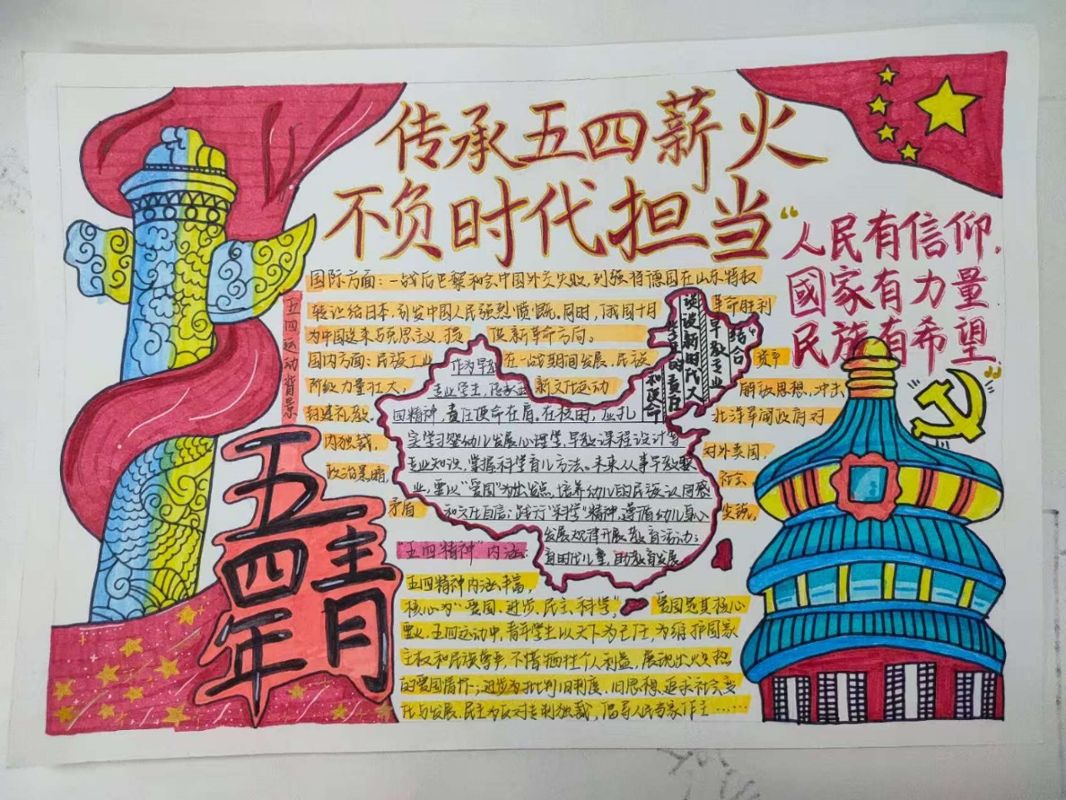 传承五四薪火
不负时代担当
“人民有信仰,
國家有力量
民族有希望”
五四运动背景
国际方面:一战后巴黎和会中国外交失败,列强将德国在山东特权
转让给日本,引发中国人民强烈愤慨,同时,俄国十月 革命胜利
为中国送来 新革命方向。
国内方面:民族工业 在一战期间发展,民族 资产
阶级力量壮大; 新文化运动 解放思想,冲击
封建礼教。 北洋军阀政府对
内独裁, 对外卖国,
政治黑暗,
矛盾
谈谈新时代大
学生的责任
和使命
早教专业
结合
作为早教
专业学生,传承五
四精神,责任使命在肩。在校时,应扎
实学习婴幼儿发展心理学,早教课程设计等
专业知识,掌握科学育儿方法。未来从事早教职
业,要以“爱国”为出发点,培养幼儿的民族认同感
和文化自信;践行“科学”精神,遵循幼儿身心
发展规律开展教育活动;
育时代儿童,助教育发展
五四
青年
“五四精神”内涵:
五四精神内涵丰富,
核心为“爱国、进步、民主、科学” 爱国是其核心
要义,五四运动中,青年学生以天下为己任,为维护国家
主权和民族尊严,不惜牺牲个人利益,展现出火热
的爱国情怀;进步为批判旧制度、旧思想,追求社会变
化与发展,民主为反对专制独裁,倡导人民当家作主……